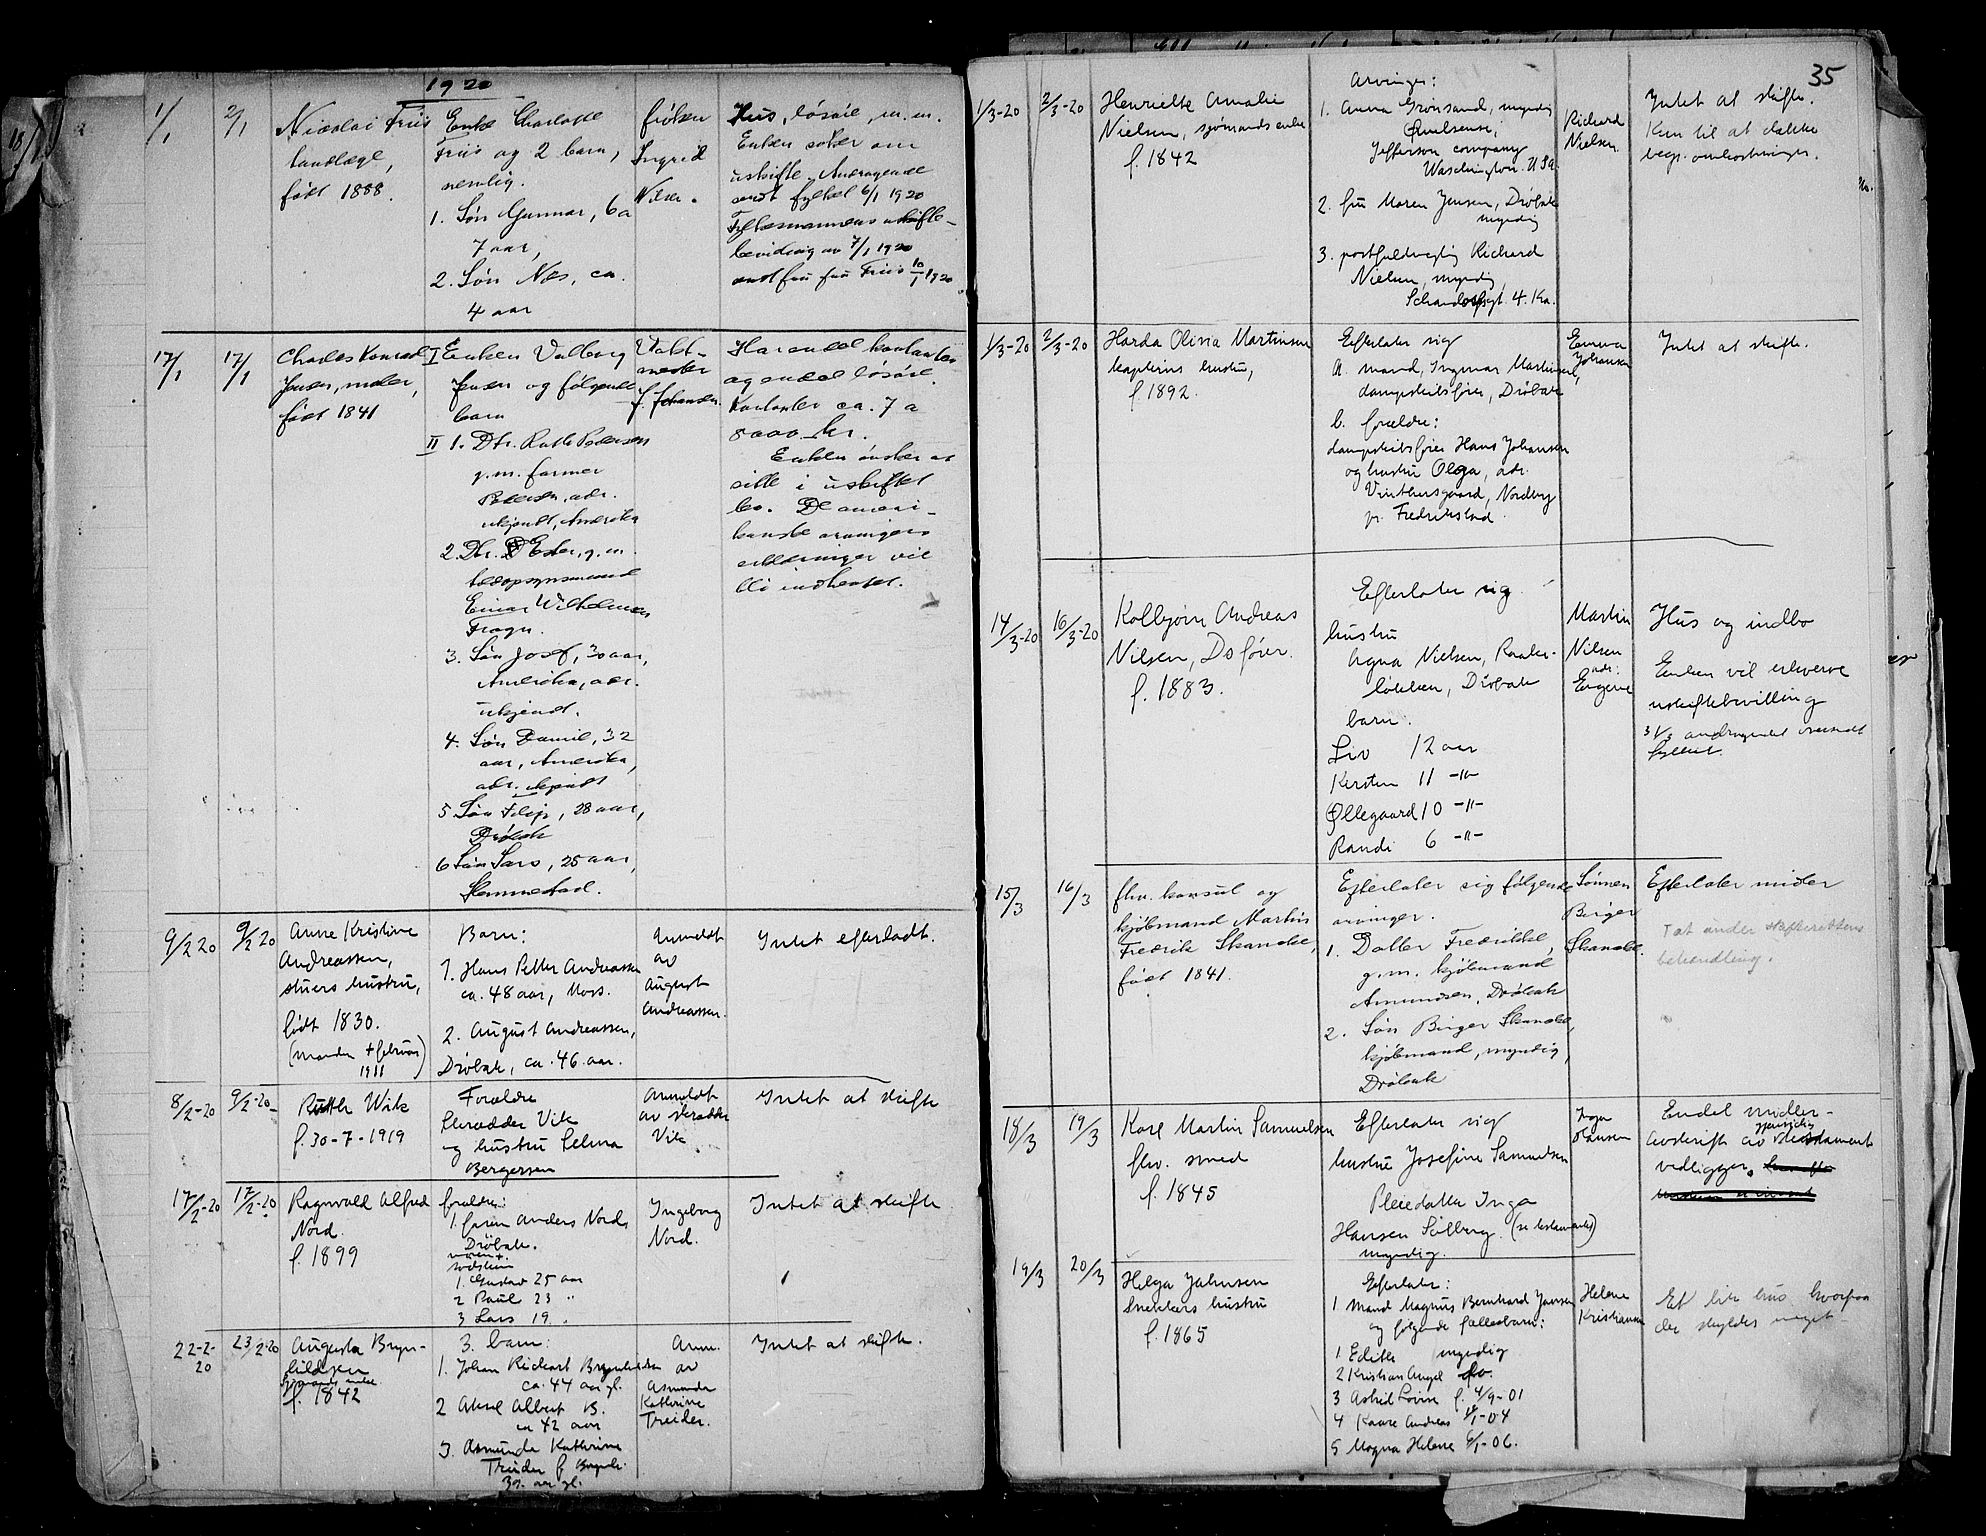 1920
1/1
2/1
Nicolai Friis
landlæge,
født 1888.
Enke Charlotte
Friis og 2 barn,
nemlig.
1. Søn Gunnar, 6 a
7 aar,
2. Søn Nils, ca.
4 aar
frøken
Ingrid
Nilsen.
Hus, løsøre, m.m.
Enken søker om
uskifte. Andragende
sendt fylket 6/1 1920
Fylkesmannens uskifte-
bevilling av 7/1 1920
sendt fru Friis 10/1 1920
17/1
17/1
Charles Konrad
Jensen, maler,
født 1841
I Enken Valborg
Jensen og følgende
barn
II 1. Dtr. Ruth Pedersen
g.m. farmer
Pedersen, adr.
ukjendt, Amerika
2. Dtr. Ester, g.m.
Einar Wilhelmsen
Frogn.
3. Søn Josef, 30 aar,
Amerika, adr.
ukjend.
4. Søn Daniel, 32
aar, Amerika,
adr. ukjendt
5 Søn Filip, 28 aar,
Drøbak
6 Søn Lars, 25 aar,
Slemmestad.
Vakt-
mester
J. Johansen.
Har endel kontanter
og endel løsøre.
Kontanter ca. 7 a
8000 kr.
Enken ønsker at
sitte i uskiftet
bo. De ameri-
kanske arvingers
erklæringer vil
bli indhentet.
9/2 20
9/2 20
Anne Kristine
Andreassen,
stuers hustru,
født 1830.
(Manden + februar
1911)
Barn:
1. Hans Petter Andreassen
ca. 48 aar, Moss.
2. August Andreassen,
Drøbak, ca. 46 aar.
Anmeldt
av
August
Andreassen.
Intet efterladt.
8/2-20
9/2-20
Ruth Wik
f. 30-7-1919
Forældre
Skrædder Vik
og hustru Selma
Bergersen
Anmeldt
av skrædder
Vik
Intet at skifte
17/2-20
17/2-20
Ragnvald Alfred
Nord.
f. 1899
forældre:
1. faren Anders Nord,
Drøbak.
moren +.
søskend
1. Gustav 25 aar
2 Paul 23 "
3 Lars 19 "
Ingeborg
Nord.
Intet at skifte
22-2-
20
23/2-20
Augusta Bryn-
hildsen
sjømands enke
f. 1842
3. barn:
1. Johan Rickart Brynhildsen
ca. 44 aar gl.
2 Aksel Albert B.
ca 42 aar
3. Asmunda Kathrine
Treider f. Brynh.
39. aar gl.
Anm.
av
Asmunda
Kathrine
Treider.
Intet at skifte.
35
1/3-20
2/3-20
Henriette Amalie
Nielsen, sjømands enke
f. 1842
Arvinger:
1. Anna Grønsand, myndig
Jefferson company
Waschington. U S a.
2. fru Maren Jensen, Drøbak
myndig
3. postfuldmægtig Richard
Nielsen, myndig,
4. Kra.
Richard
Nielsen.
Intet at skifte.
Kun til at dække
begr. omkostninger.
1/3-20
2/3-20
Harda Olivia Martinsen
kapteins hustru,
f. 1892.
Efterlater sig
a. mand, Ingmar Martinsen,
dampskibsfører, Drøbak
b. forældre:
dampskibsfører Hans Johansen
og hustru Olga, adr.
Vinthersgaard, Nordby
pr. Fredrikstad.
Emma
Johansen
Intet at skifte.
14/3-20
16/3-20
Kolbjørn Andreas
Nilsen, Do fører.
f. 1883.
Efterlater sig
hustru
Agna Nielsen, Raaker-
løkken, Drøbak
barn.
Liv 12 aar
Kirsten 11 -"-
Øllegaard 10 -"-
Randi 6 -"-
Martin
Nilsen
adr.
Engene
Hus og indbo
Enken vil erhverve
uskiftebevilling
31/3 andragendet oversendt
fylket.
15/3
16/3
fhv. konsul og
kjøbmand Martin
Fredrik Skanche,
født 1841.
Efterlater sig følgende
arvinger.
1. Datter Fredrikke,
g.m. kjøbmand
Amundsen, Drøbak
2. Søn Birger Skanche,
kjøbmand, myndig,
Drøbak
Sønnen
Birger
Skanche.
Efterlater midler
Tat under skifterettens
behandling.
18/3
19/3
Karl Martin Samuelsen
fhv. smed
f. 1845
Efterlater sig
hustru Josefine Samuelsen
Pleiedatter Inga
Hansen Solberg. (se testamentet)
myndig.
Inga
Hansen
Endel midler-
Avskrift av gjensidig testament
vedligger.
19/3
20/3
Helga Jahnsen
snekkers hustru
f. 1865
Efterlater:
1 Mand Magnus Bernhard Jansen
og følgende fællesbarn:
1 Edith myndig
2 Kristian Angel do.
3 Astrid Lovise f. 4/9-01
4 Kaare Andreas -04
5 Magna Helene 6/1-06.
Helene
Kristiansen
Et lite hus hvorpaa
der skyldes meget